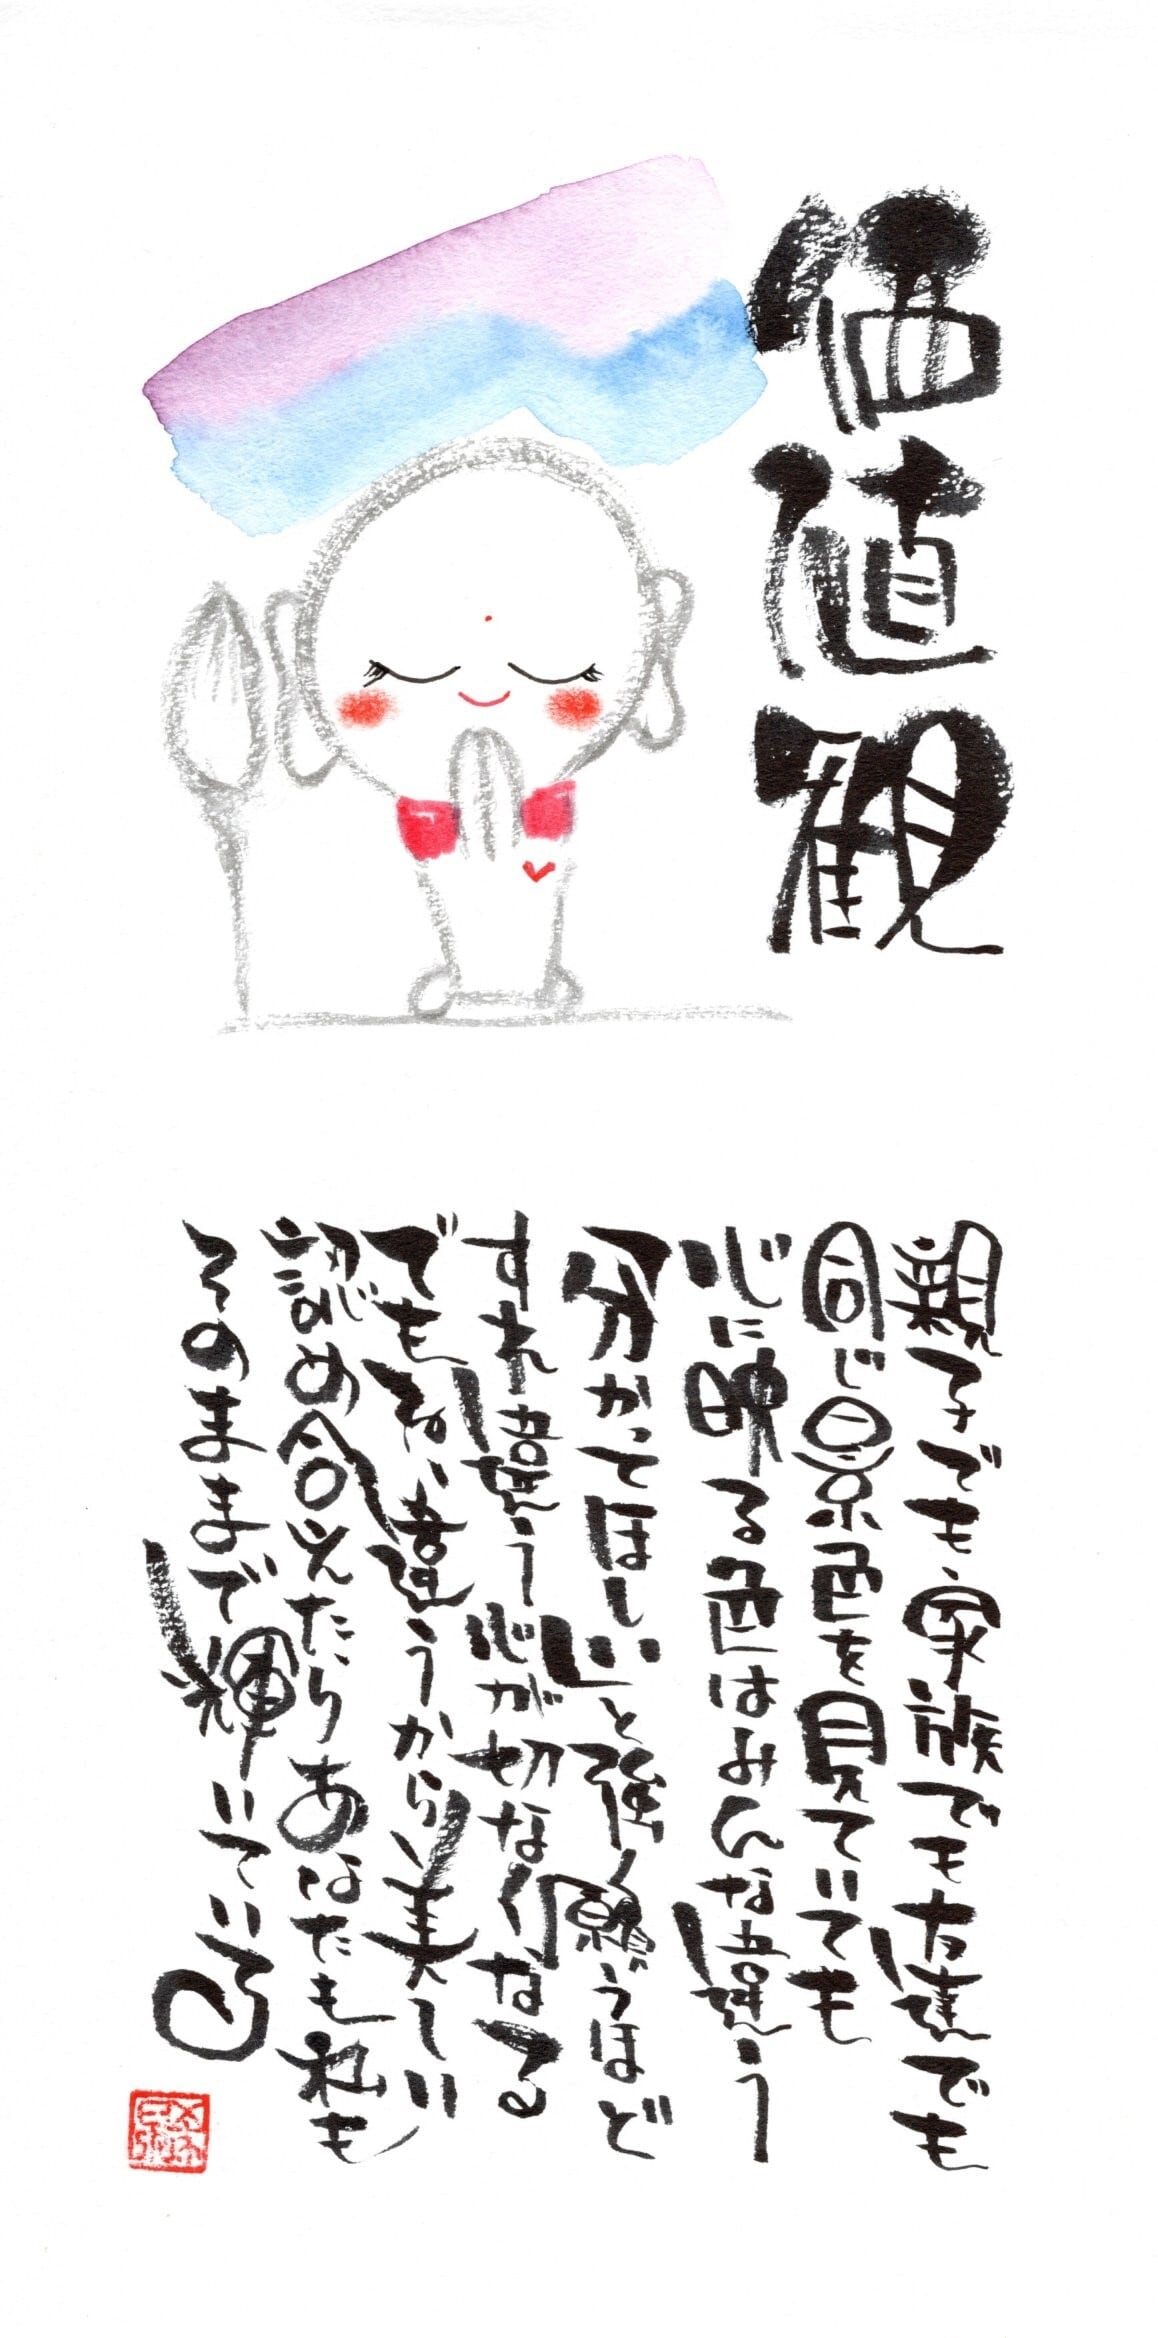 価値観
親子でも家族でも友達でも
同じ景色を見ていても
心に映る色はみんな違う
分かってほしいと強く願うほど
すれ違う心が切なくなる
でもね、違うから美しい
認め合えたらあなたも私も
そのままで輝いている